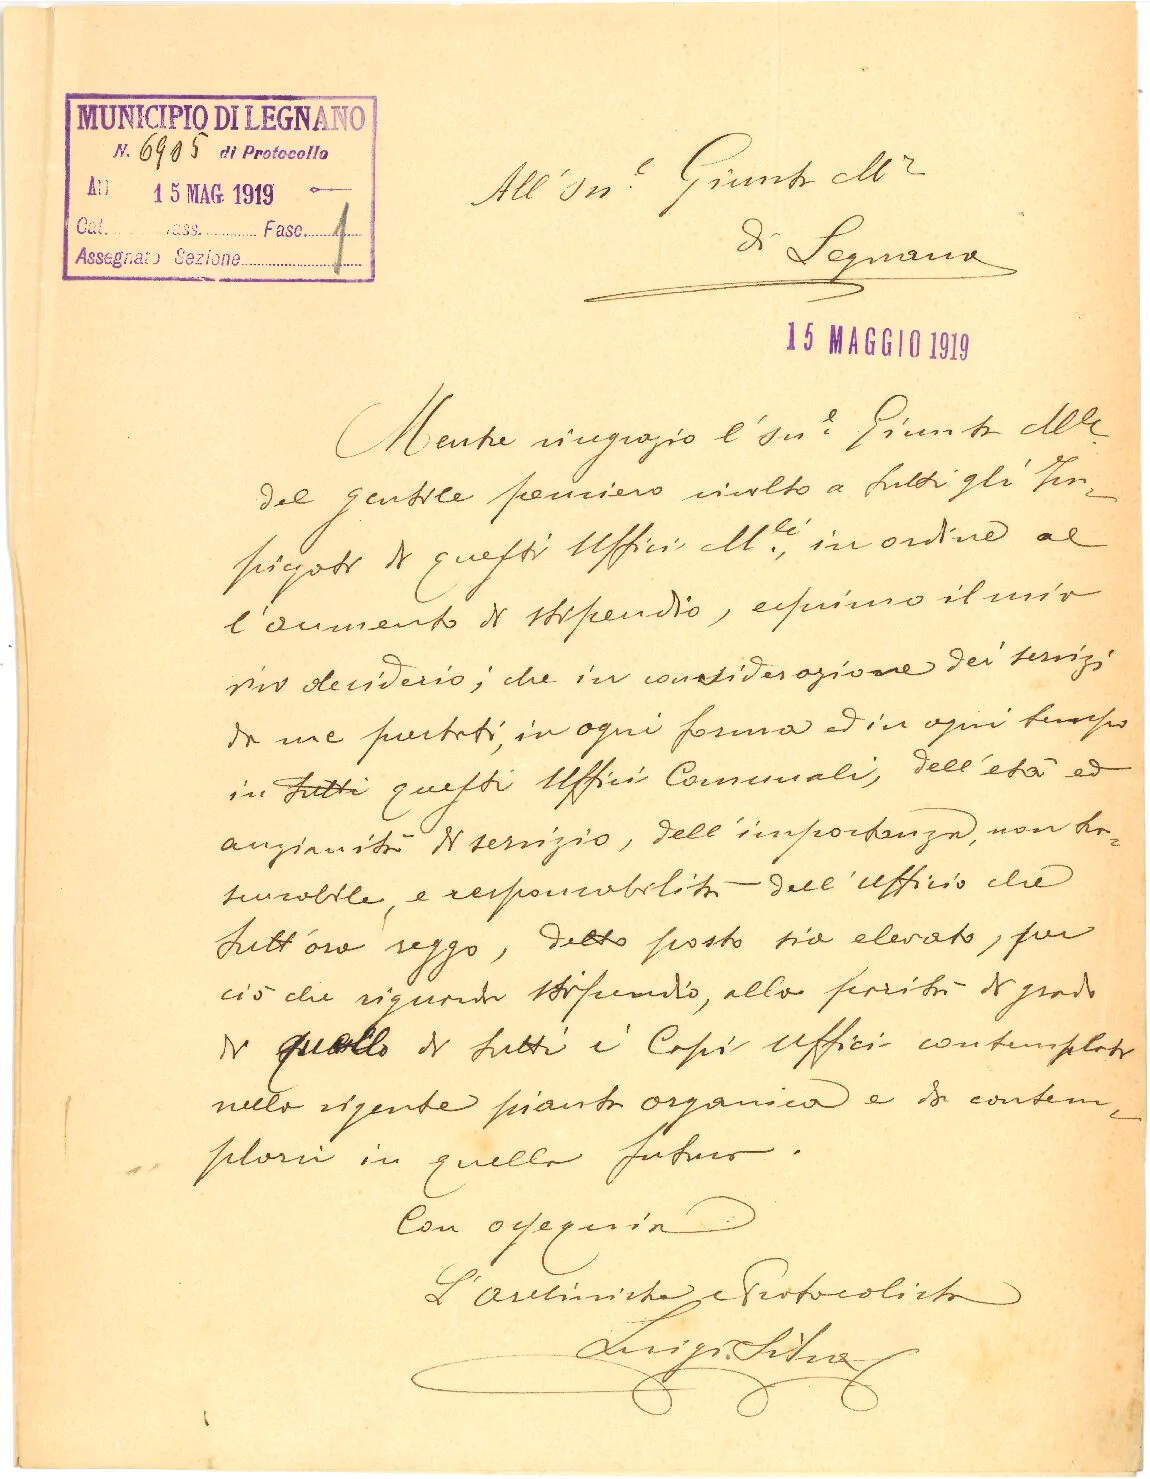 MUNICIPIO DI LEGNANO
N. 6905 di Protocollo
Arr 15 MAG. 1919
Cat. ass. Fasc. 1
Assegnato Sezione
All' On.e Giunta M.
di Legnano
15 MAGGIO 1919
Mentre ringrazio l'On.e Giunta M.le
del gentile pensiero rivolto a tutti gli Im-
piegati di questi Uffici M.li, in ordine al
l'aumento di stipendio, esprimo il mio
vivo desiderio; che in considerazione dei servizi
da me prestati, in ogni forma ed in ogni tempo
in tutti questi Uffici Comunali, dell'età ed
anzianità di servizio, dell'importanza, non tra-
scurabile, e responsabilità dell'Ufficio che
tutt'ora reggo, detto posto sia elevato, per
ciò che riguarda stipendio, alla parità di grado
di quello di tutti i Capi Uffici contemplati
nella vigente pianta organica e da contem-
plarsi in quella futura.
Con ossequio
L'Archivista Protocollista
Luigi Silva